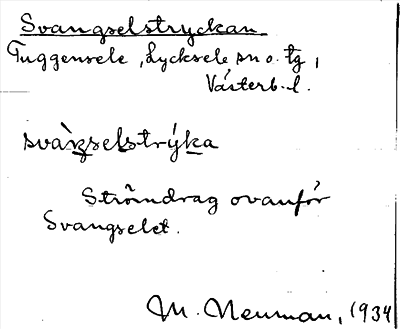 Svangselstryckan
Tuggensele, Lycksele sn o. tg,
Västerb. l.
svàŋselstrýka
Strömdrag ovanför
Svangselet.
M. Neuman, 1934